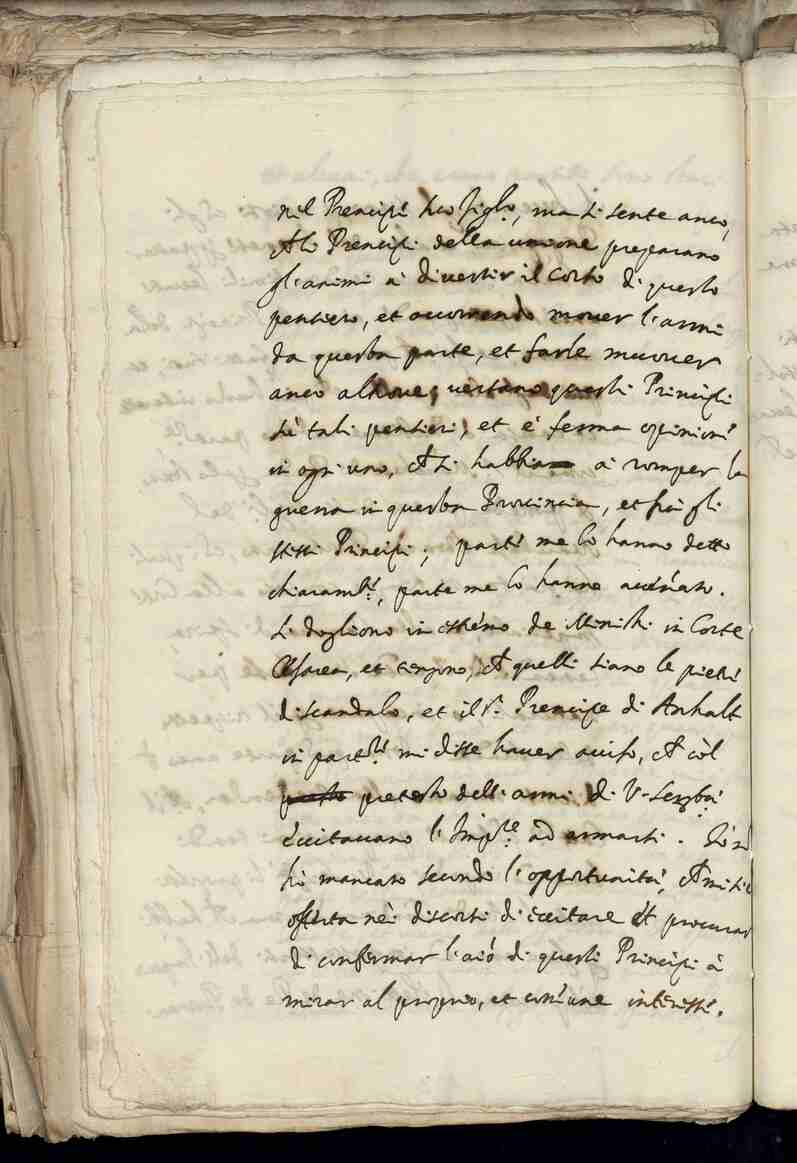 nel Prencipe suo figlio, ma si sente anco,
ch li Prencipi della unione preparano
gl'animi à divertir il corso di questo
pensiero, et occorrendo mover l'armi
da questa parte, et farle muover
anco altrove; versano questi Prencipi
tali pensieri, et è ferma opinione
in ogni uno, ch si habbia à romper la
guerra in questa Provincia, et frà gli
stessi Prencipi; parte me lo hanno detto
chiaramte, parte me lo hanno accenato.
Si dogliono in estremo de Ministri in Corte
Cesarea, et tengono, ch quelli siano le pietre
di scandalo, et il Sr. Prencipe di Anhalt
in partre mi disse haver aviso, ch còl
pretesto dell'armi di V. Serenità
eccitavano l'Impre ad armarsi. Iò nò
hò mancato secondo l'opportunità, ch mi si è
offerta nei discorsi di eccitare et procurar
di confermar l'aio di questi Prencipi à
mirar al proprio, et comune interesse.